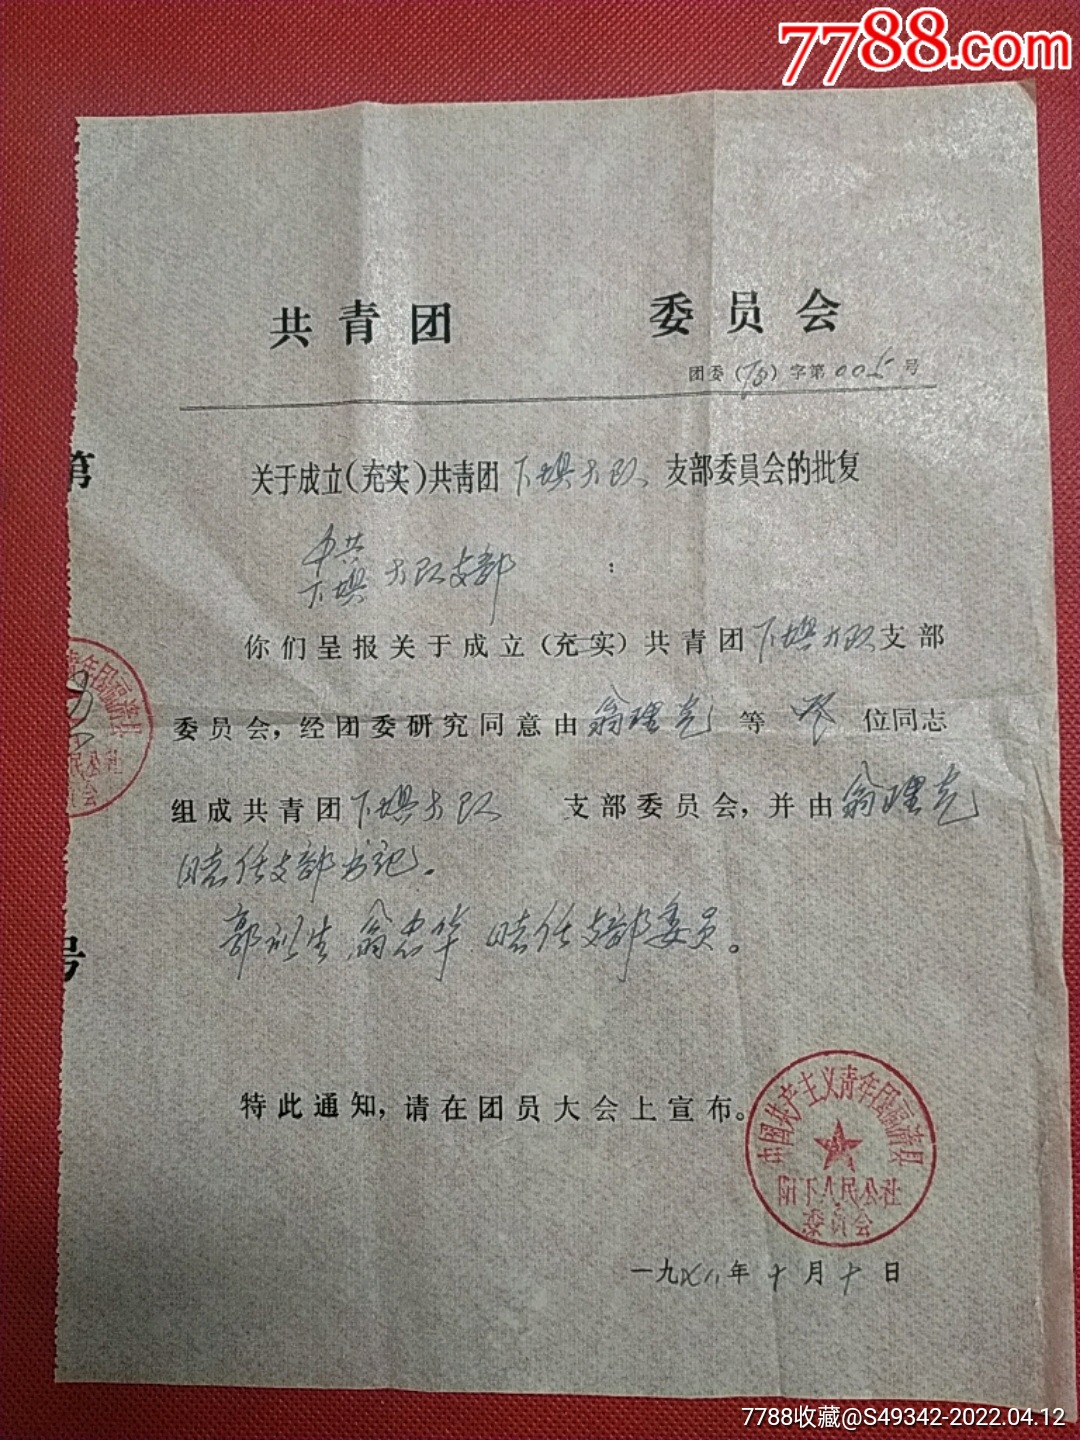 7788.com
共青团 委员会
团委(78)字第005号
关于成立(充实)共青团下埧大队支部委員会的批复
中共
下埧大队支部:
你们呈报关于成立(充实)共青团下埧大队支部
委员会,经团委研究同意由翁理 等 位同志
组成共青团下埧大队 支部委员会,并由翁理
同志任支部书记。
郭 生 翁忠华 同志任支部委员。
第
号
特此通知,请在团员大会上宣布。
中國共产主义青年团福清县
阳下人民公社
委员会
一九七八年十月十日
7788收藏@S49342-2022.04.12